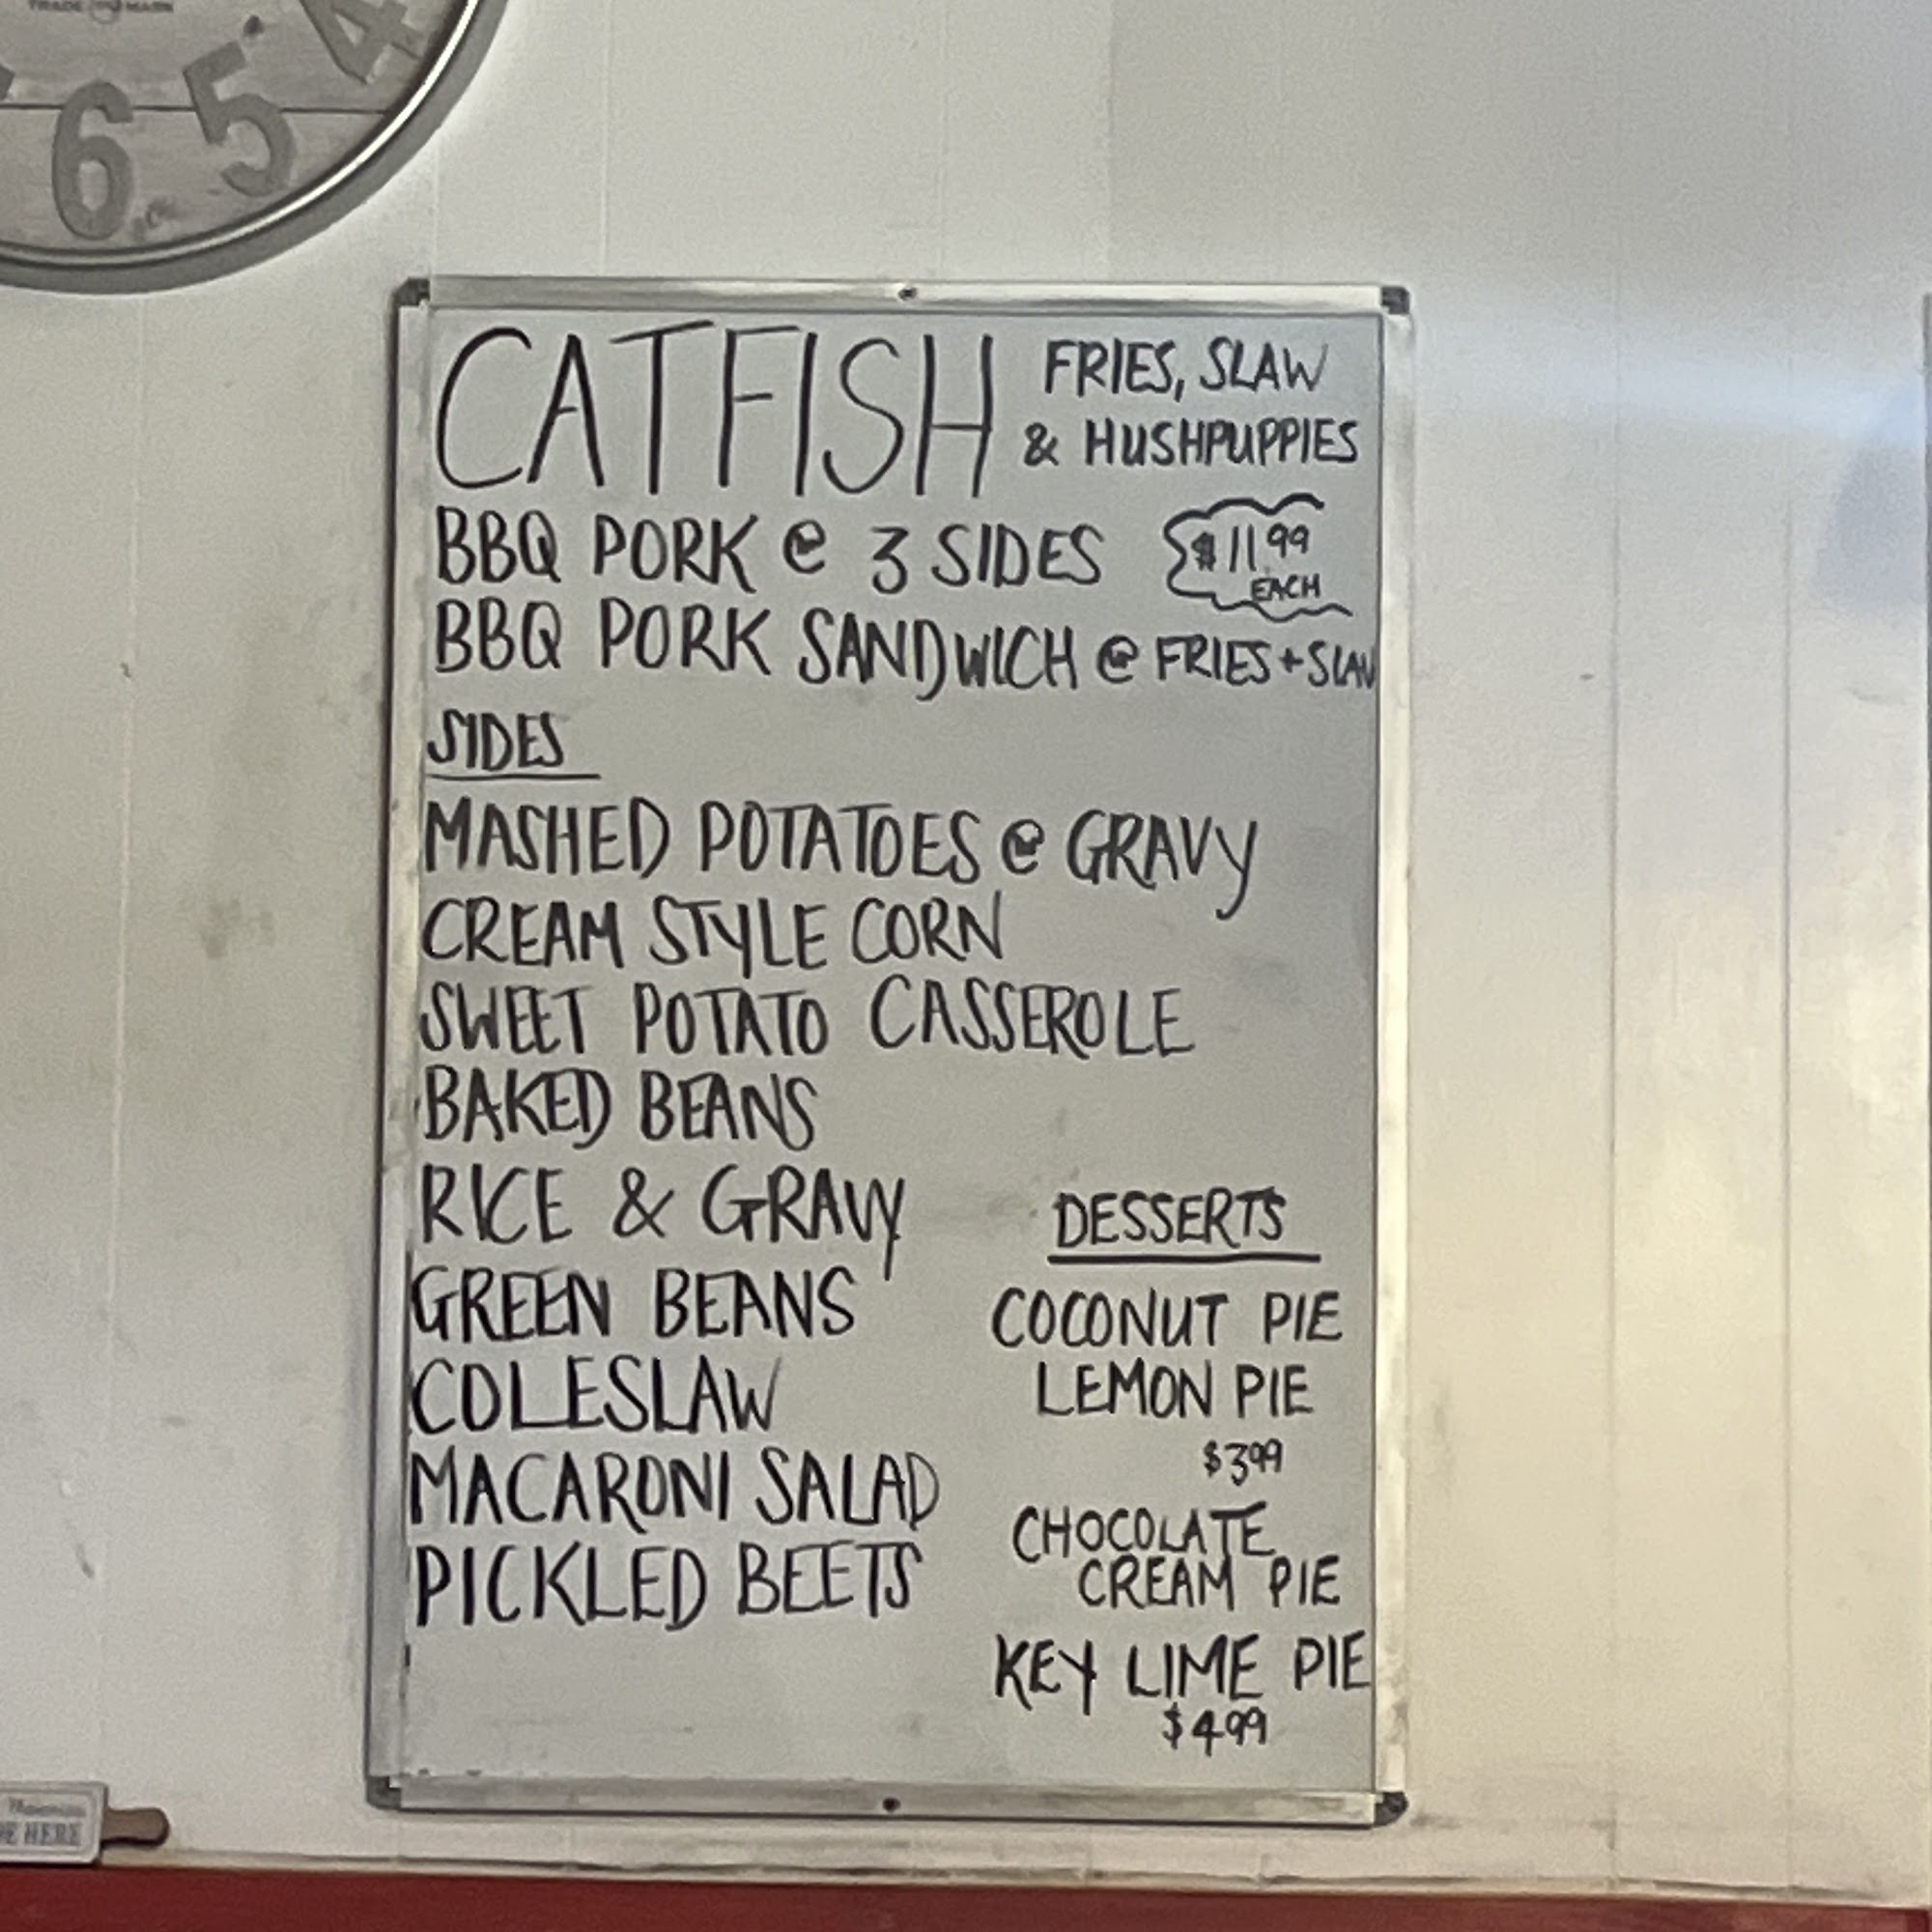 4
5
6
CATFISH FRIES, SLAW
& HUSHPUPPIES
BBQ PORK @ 3 SIDES $11.99
EACH
BBQ PORK SANDWICH @ FRIES + SLAW
SIDES
MASHED POTATOES @ GRAVY
CREAM STYLE CORN
SWEET POTATO CASSEROLE
BAKED BEANS
RICE & GRAVY
GREEN BEANS
COLESLAW
MACARONI SALAD
PICKLED BEETS
DESSERTS
COCONUT PIE
LEMON PIE
$3.99
CHOCOLATE
CREAM PIE
KEY LIME PIE
$4.99
HERE